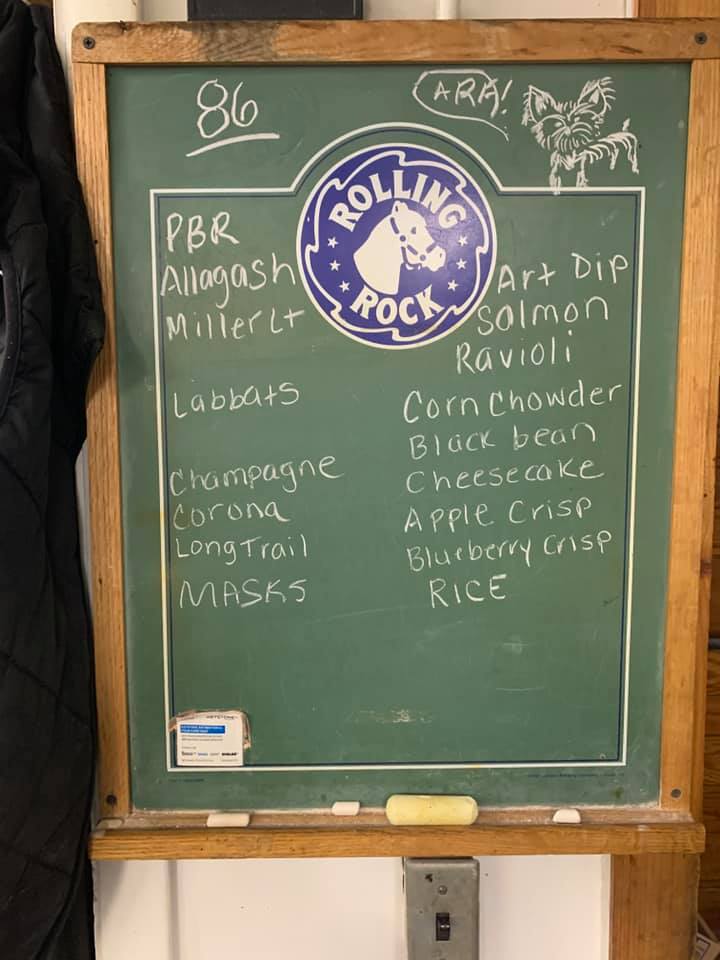 86
ARA!
ROLLING
ROCK
PBR
Allagash
Miller Lt
Labbats
Champagne
Corona
Long Trail
MASKS
Art Dip
Salmon
Ravioli
Corn Chowder
Black bean
Cheesecake
Apple Crisp
Blueberry Crisp
RICE